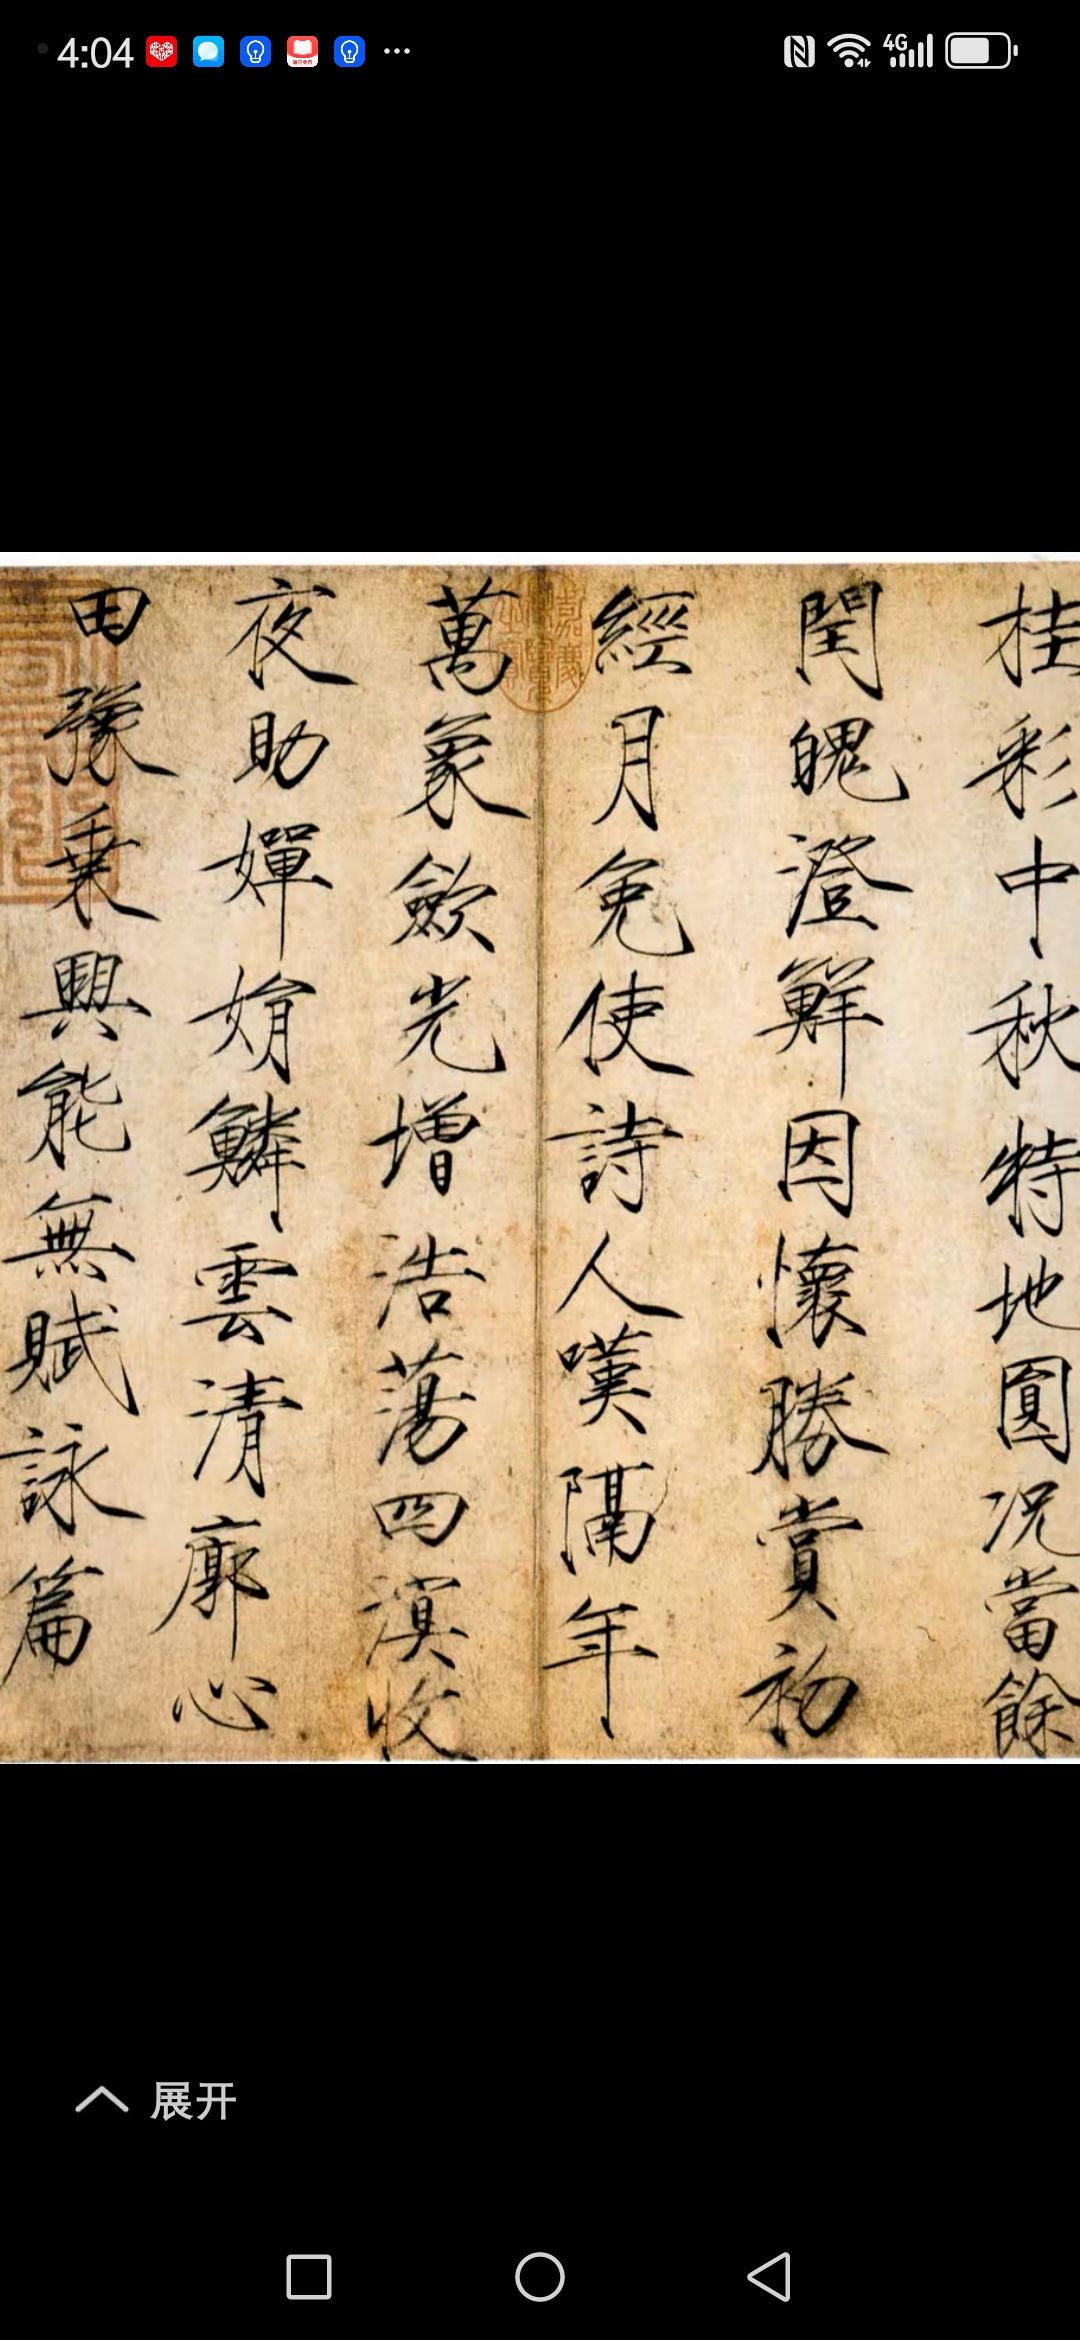 4:04
4G
桂彩中秋特地圓况當餘
閏魄澄鮮因懷勝賞初
經月免使詩人嘆隔年
萬象歛光增浩蕩四溟收
夜助嬋娟鱗雲清廓心
田豫乗興能無賦詠篇
展开